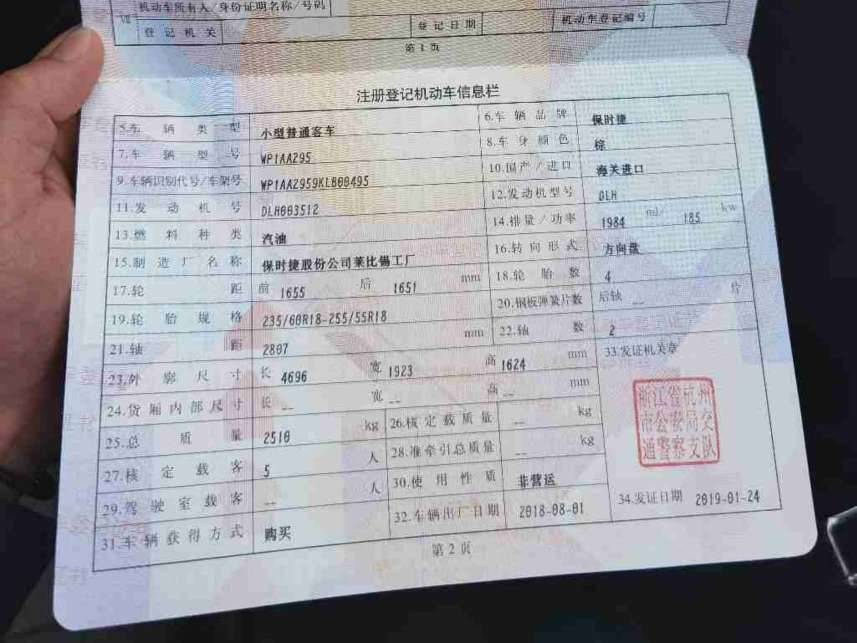 Ⅶ 机动车所有人/身份证明名称/号码
登记机关 登记日期 机动车登记编号
第1页
注册登记机动车信息栏
5.车辆类型 小型普通客车 6.车辆品牌 保时捷
7.车辆型号 WP1AA295 8.车身颜色 棕
9.车辆识别代号/车架号 WP1AA2959KLB00495 10.国产/进口 海关进口
11.发动机号 DLH003512 12.发动机型号 DLH
13.燃料种类 汽油 14.排量/功率 1984 ml/ 185 kw
15.制造厂名称 保时捷股份公司莱比锡工厂 16.转向形式 方向盘
17.轮距 前 1655 后 1651 mm 18.轮胎数 4
19.轮胎规格 235/60R18-255/55R18 20.钢板弹簧片数 后轴 -- 片
21.轴距 2807 mm 22.轴数 2
23.外廓尺寸 长 4696 宽 1923 高 1624 mm 33.发证机关章
24.货厢内部尺寸 长 -- 宽 -- 高 -- mm
25.总质量 2510 kg 26.核定载质量 -- kg
27.核定载客 5 人 28.准牵引总质量 -- kg
29.驾驶室载客 -- 人 30.使用性质 非营运
31.车辆获得方式 购买 32.车辆出厂日期 2018-08-01 34.发证日期 2019-01-24
浙江省杭州
市公安局交
通警察支队
第2页